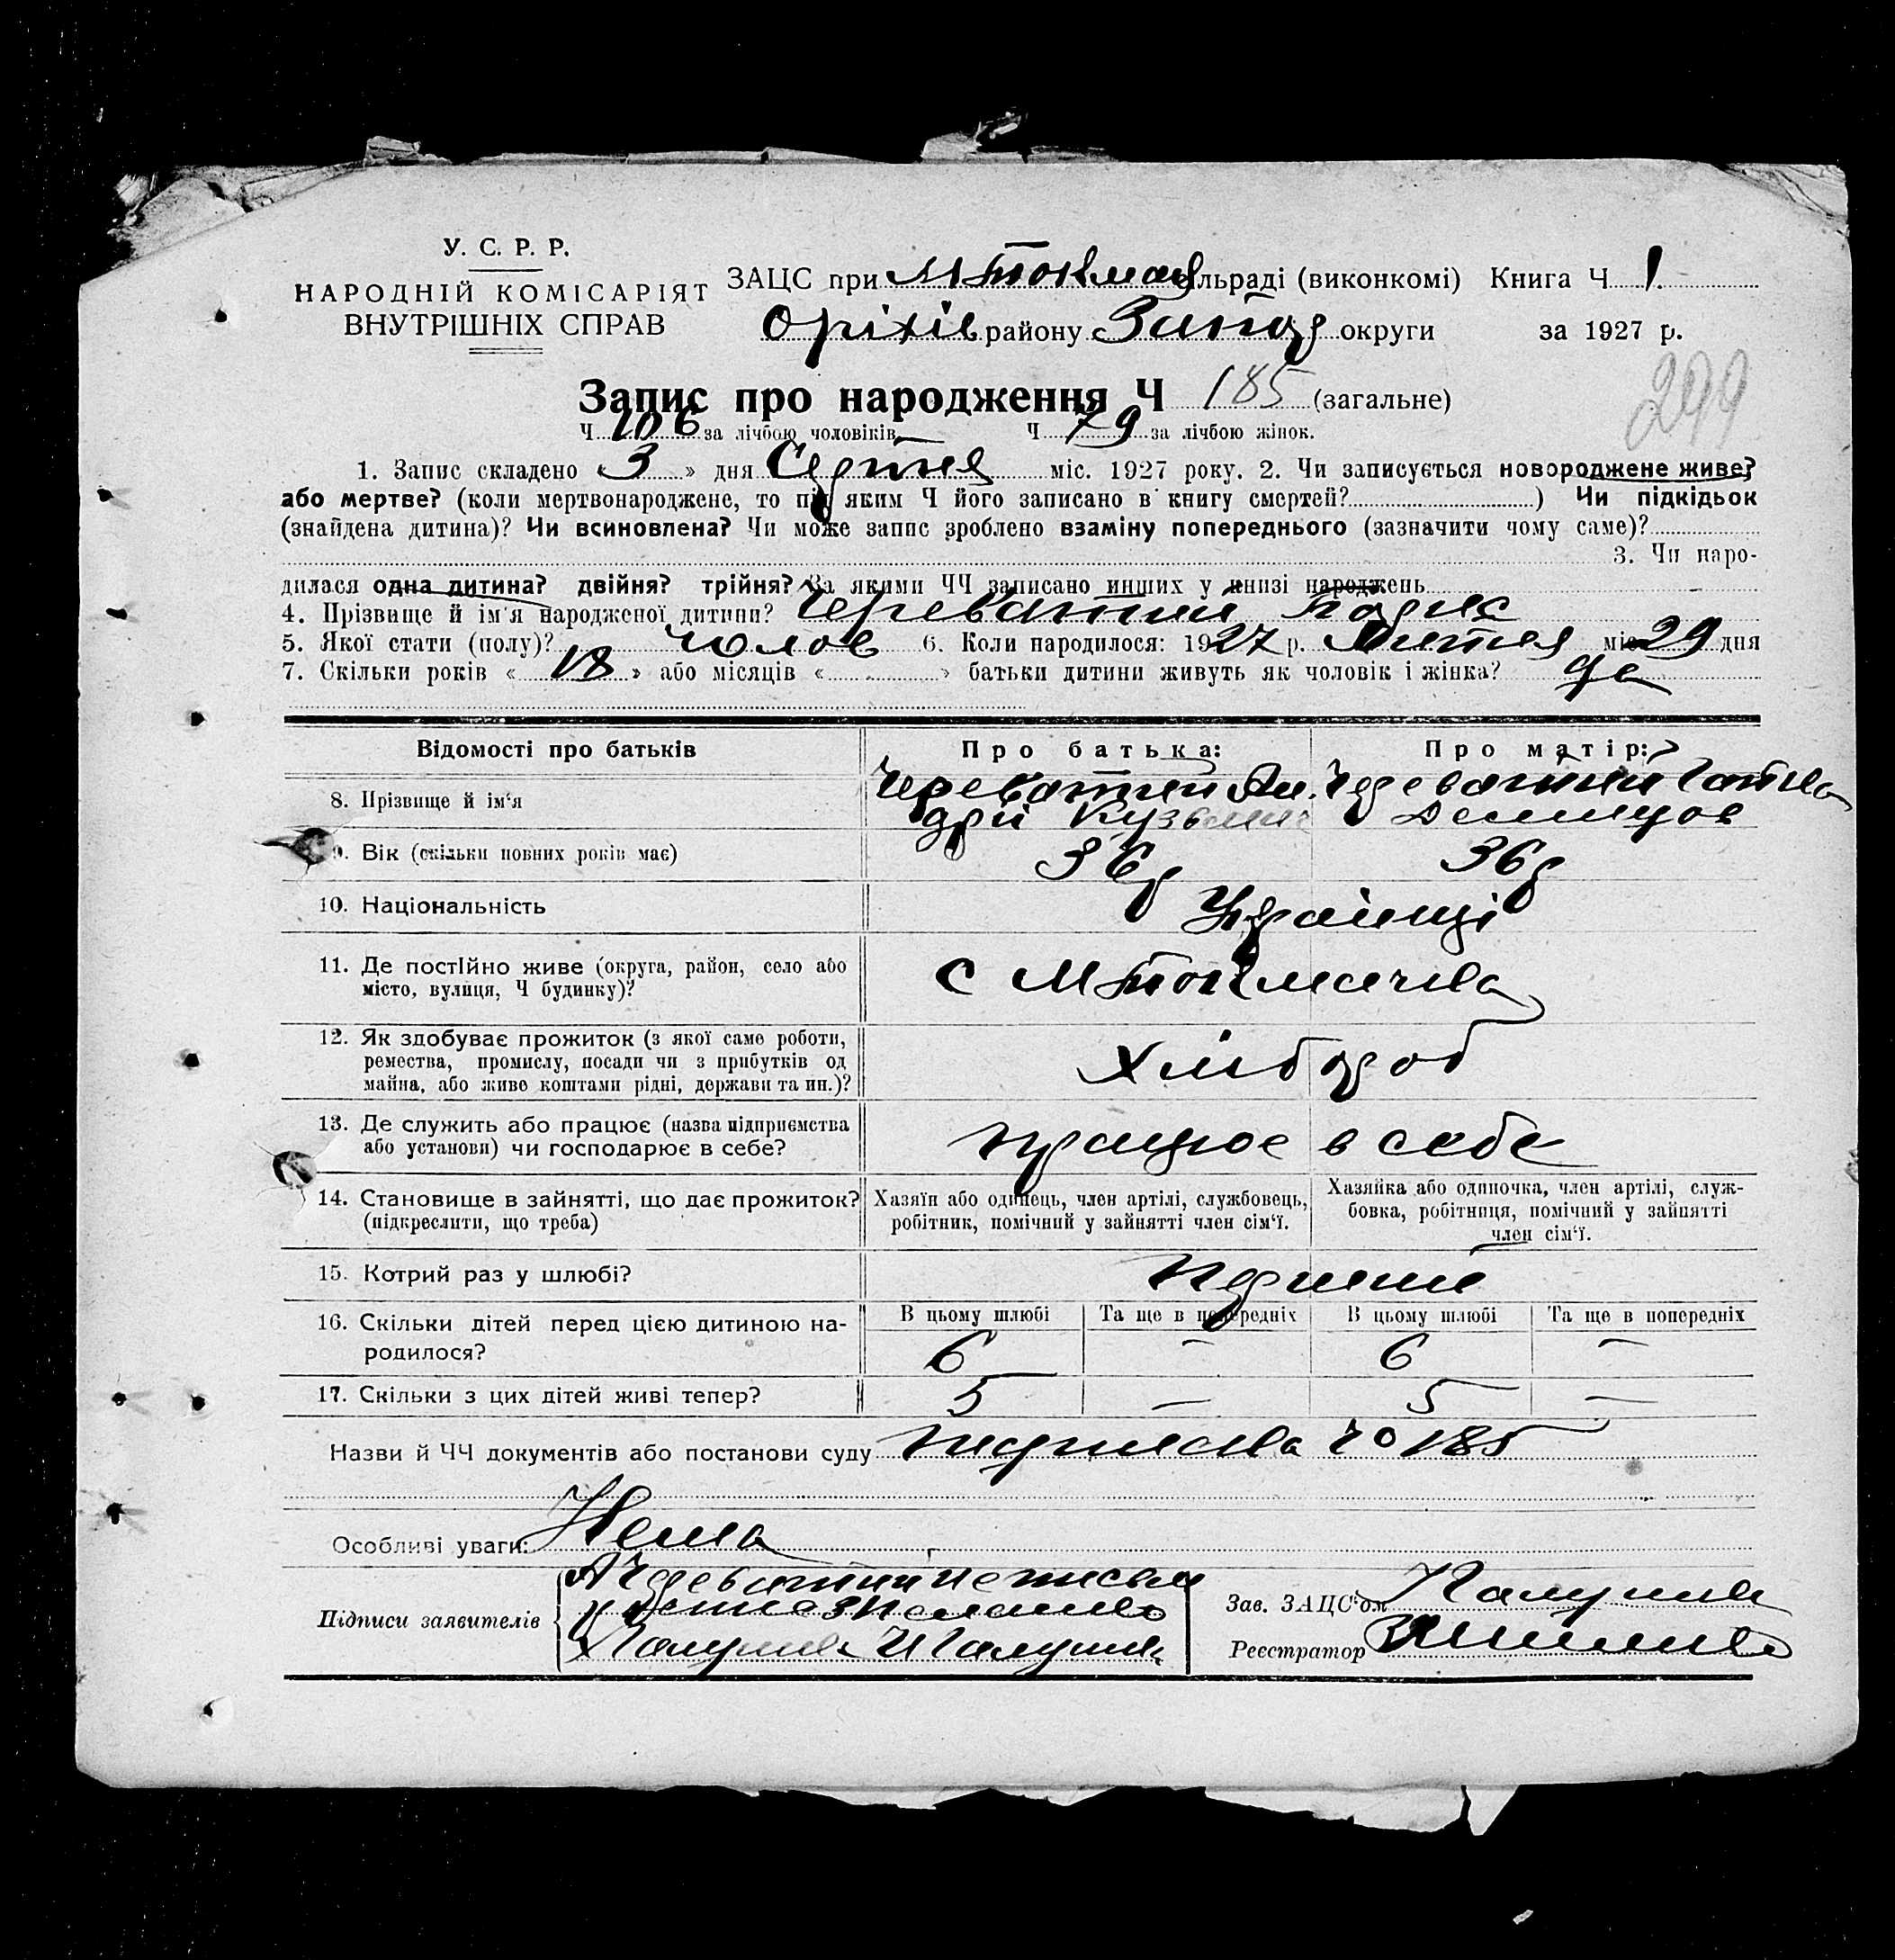 У. С. Р. Р.
НАРОДНІЙ КОМІСАРІЯТ
ВНУТРІШНІХ СПРАВ
ЗАЦС при М Токмац сільраді (виконкомі) Книга Ч 1.
Оріхів району Запор округи за 1927 р.
299
Запис про народження Ч 185 (загальне)
Ч 106 за лічбою чоловіків Ч 79 за лічбою жінок.
1. Запис складено « 3 » дня Серпня міс. 1927 року. 2. Чи записується новороджене живе?
або мертве? (коли мертвонароджене, то під яким Ч його записано в книгу смертей? ) Чи підкідьок
(знайдена дитина)? Чи всиновлена? Чи може запис зроблено взаміну попереднього (зазначити чому саме)?
3. Чи наро-
дилася одна дитина? двійня? трійня? За якими ЧЧ записано инших у книзі народжень
4. Прізвище й ім'я народженої дитини? Череватий
5. Якої стати (полу)? чолов 6. Коли народилося: 1927 р. Липня міс 29 дня
7. Скільки років « 18 » або місяців « » батьки дитини живуть як чоловік і жінка? да
Відомості про батьків Про батька: Про матір:
8. Прізвище й ім'я Череватий Ан- Череватий
дрій Кузьмич
9. Вік (скільки повних років має) 36 р 36 р
10. Національність Українці
11. Де постійно живе (округа, район, село або
місто, вулиця, Ч будинку)? с М Токмачка
12. Як здобуває прожиток (з якої саме роботи,
ремества, промислу, посади чи з прибутків од
майна, або живе коштами рідні, держави та ин.)? Хлібороб
13. Де служить або працює (назва підприємства
або установи) чи господарює в себе? працює в себе
14. Становище в зайнятті, що дає прожиток?
(підкреслити, що треба)
Хазяїн або одинець, член артілі, службовець,
робітник, помічний у зайнятті член сім'ї.
Хазяйка або одиночка, член артілі, служ-
бовка, робітниця, помічний у зайнятті
член сім'ї.
15. Котрий раз у шлюбі? первий
16. Скільки дітей перед цією дитиною на-
родилося?
В цьому шлюбі Та ще в попередніх В цьому шлюбі Та ще в попередніх
6 — 6 —
17. Скільки з цих дітей живі тепер? 5 — 5 —
Назви й ЧЧ документів або постанови суду 185
Особливі уваги: Нема
Підписи заявителів А Череватий
Зав. ЗАЦС'ом
Реєстратор